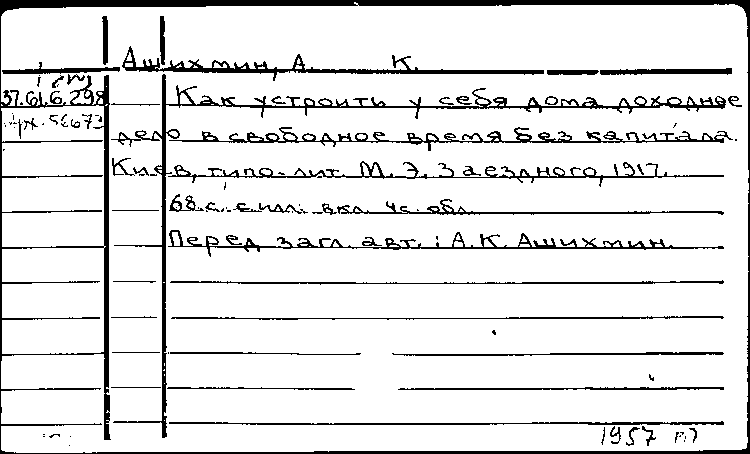 Ашихмин, А. К.
37.61.6.298
Арх. 56673
Как устроить у себя дома доходное
дело в свободное время без капитала.
Киев, типо-лит. М. Э. Заездного, 1917.
68 с. с илл. вкл. 4 с. обл.
Перед загл. авт.: А. К. Ашихмин.
1957